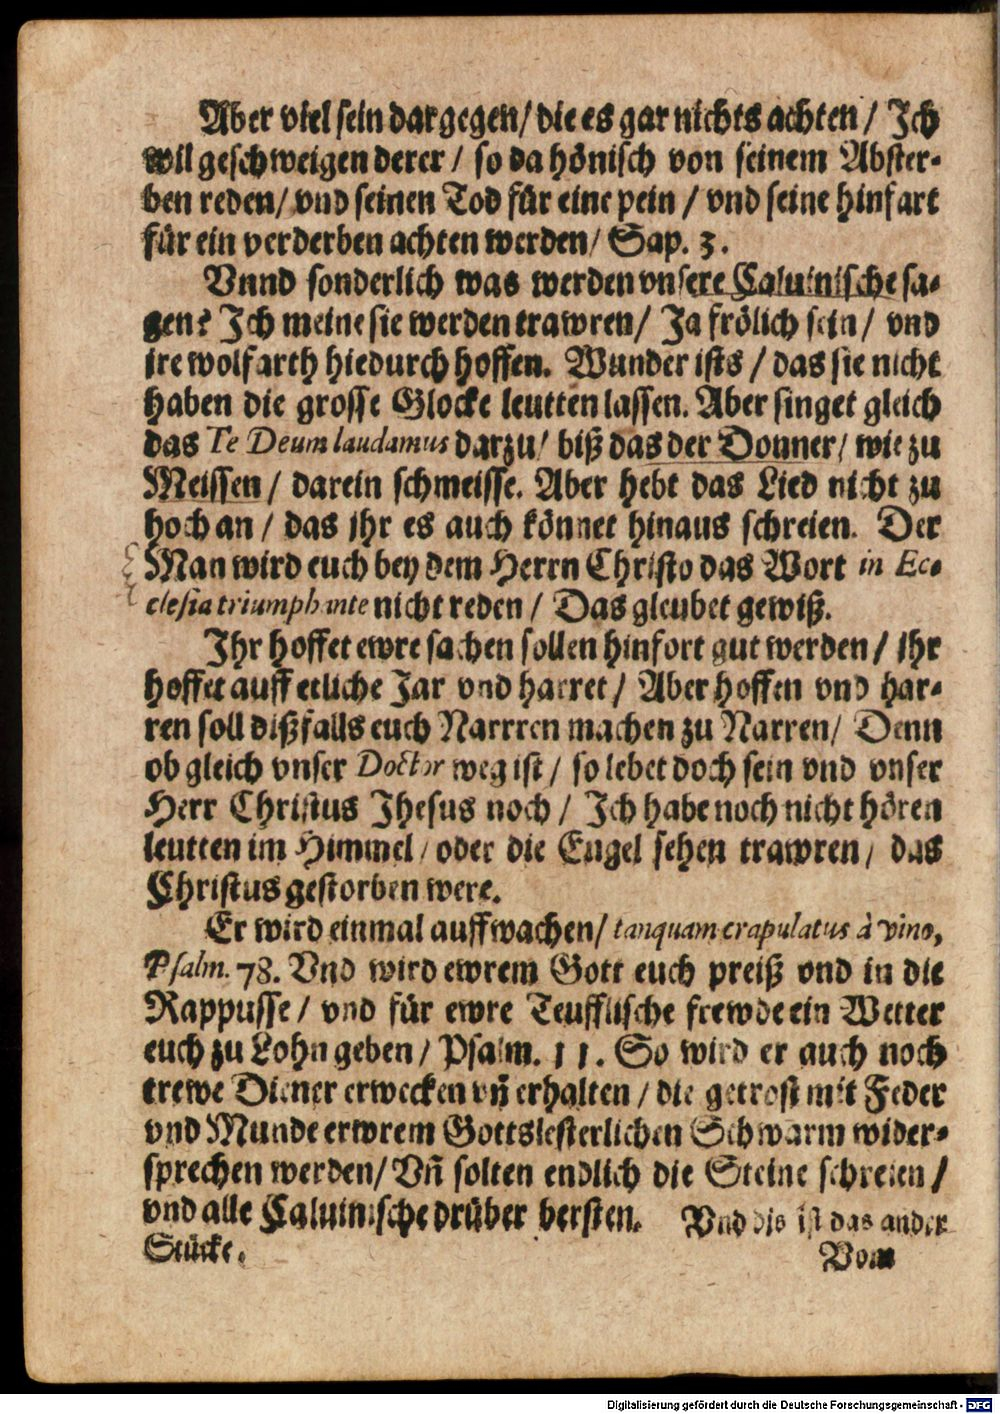 Aber viel sein dargegen/ die es gar nichts achten / Ich
wil geschweigen derer / so da hönisch von seinem Abster-
ben reden/ vnd seinen Tod für eine pein / vnd seine hinfart
für ein verderben achten werden/ Sap. 3.
Vnnd sonderlich was werden vnsere Caluinische sa-
gen? Ich meine sie werden trawren/ Ja frölich sein/ vnd
ire wolfarth hiedurch hoffen. Wunder ists / das sie nicht
haben die grosse Glocke leutten lassen. Aber singet gleich
das Te Deum laudamus darzu/ biß das der Donner/ wie zu
Meissen / darein schmeisse. Aber hebt das Lied nicht zu
hoch an / das ihr es auch könnet hinaus schreien. Der
Man wird euch bey dem Herrn Christo das Wort in Ec-
clesia triumphante nicht reden / Das gleubet gewiß.
Ihr hoffet ewre sachen sollen hinfort gut werden / ihr
hoffet auff etliche Jar vnd harret / Aber hoffen vnd har-
ren soll dißfalls euch Narrren machen zu Narren/ Denn
ob gleich vnser Doctor weg ist / so lebet doch sein vnd vnser
Herr Christus Jhesus noch / Ich habe noch nicht hören
leutten im Himmel / oder die Engel sehen trawren / das
Christus gestorben were.
Er wird einmal auffwachen/ tanquam crapulatus à vino,
Psalm. 78. Vnd wird ewrem Gott euch preiß vnd in die
Rappusse / vnd für ewre Teufflische frewde ein Wetter
euch zu Lohn geben / Psalm. 11. So wird er auch noch
trewe Diener erwecken vñ erhalten / die getrost mit Feder
vnd Munde erwrem Gottslesterlichen Schwarm wider-
sprechen werden/ Vñ solten endlich die Steine schreien /
vnd alle Caluinische drüber bersten. Vnd dis ist das ander
Stücke.
Vom
Digitalisierung gefördert durch die Deutsche Forschungsgemeinschaft - DFG